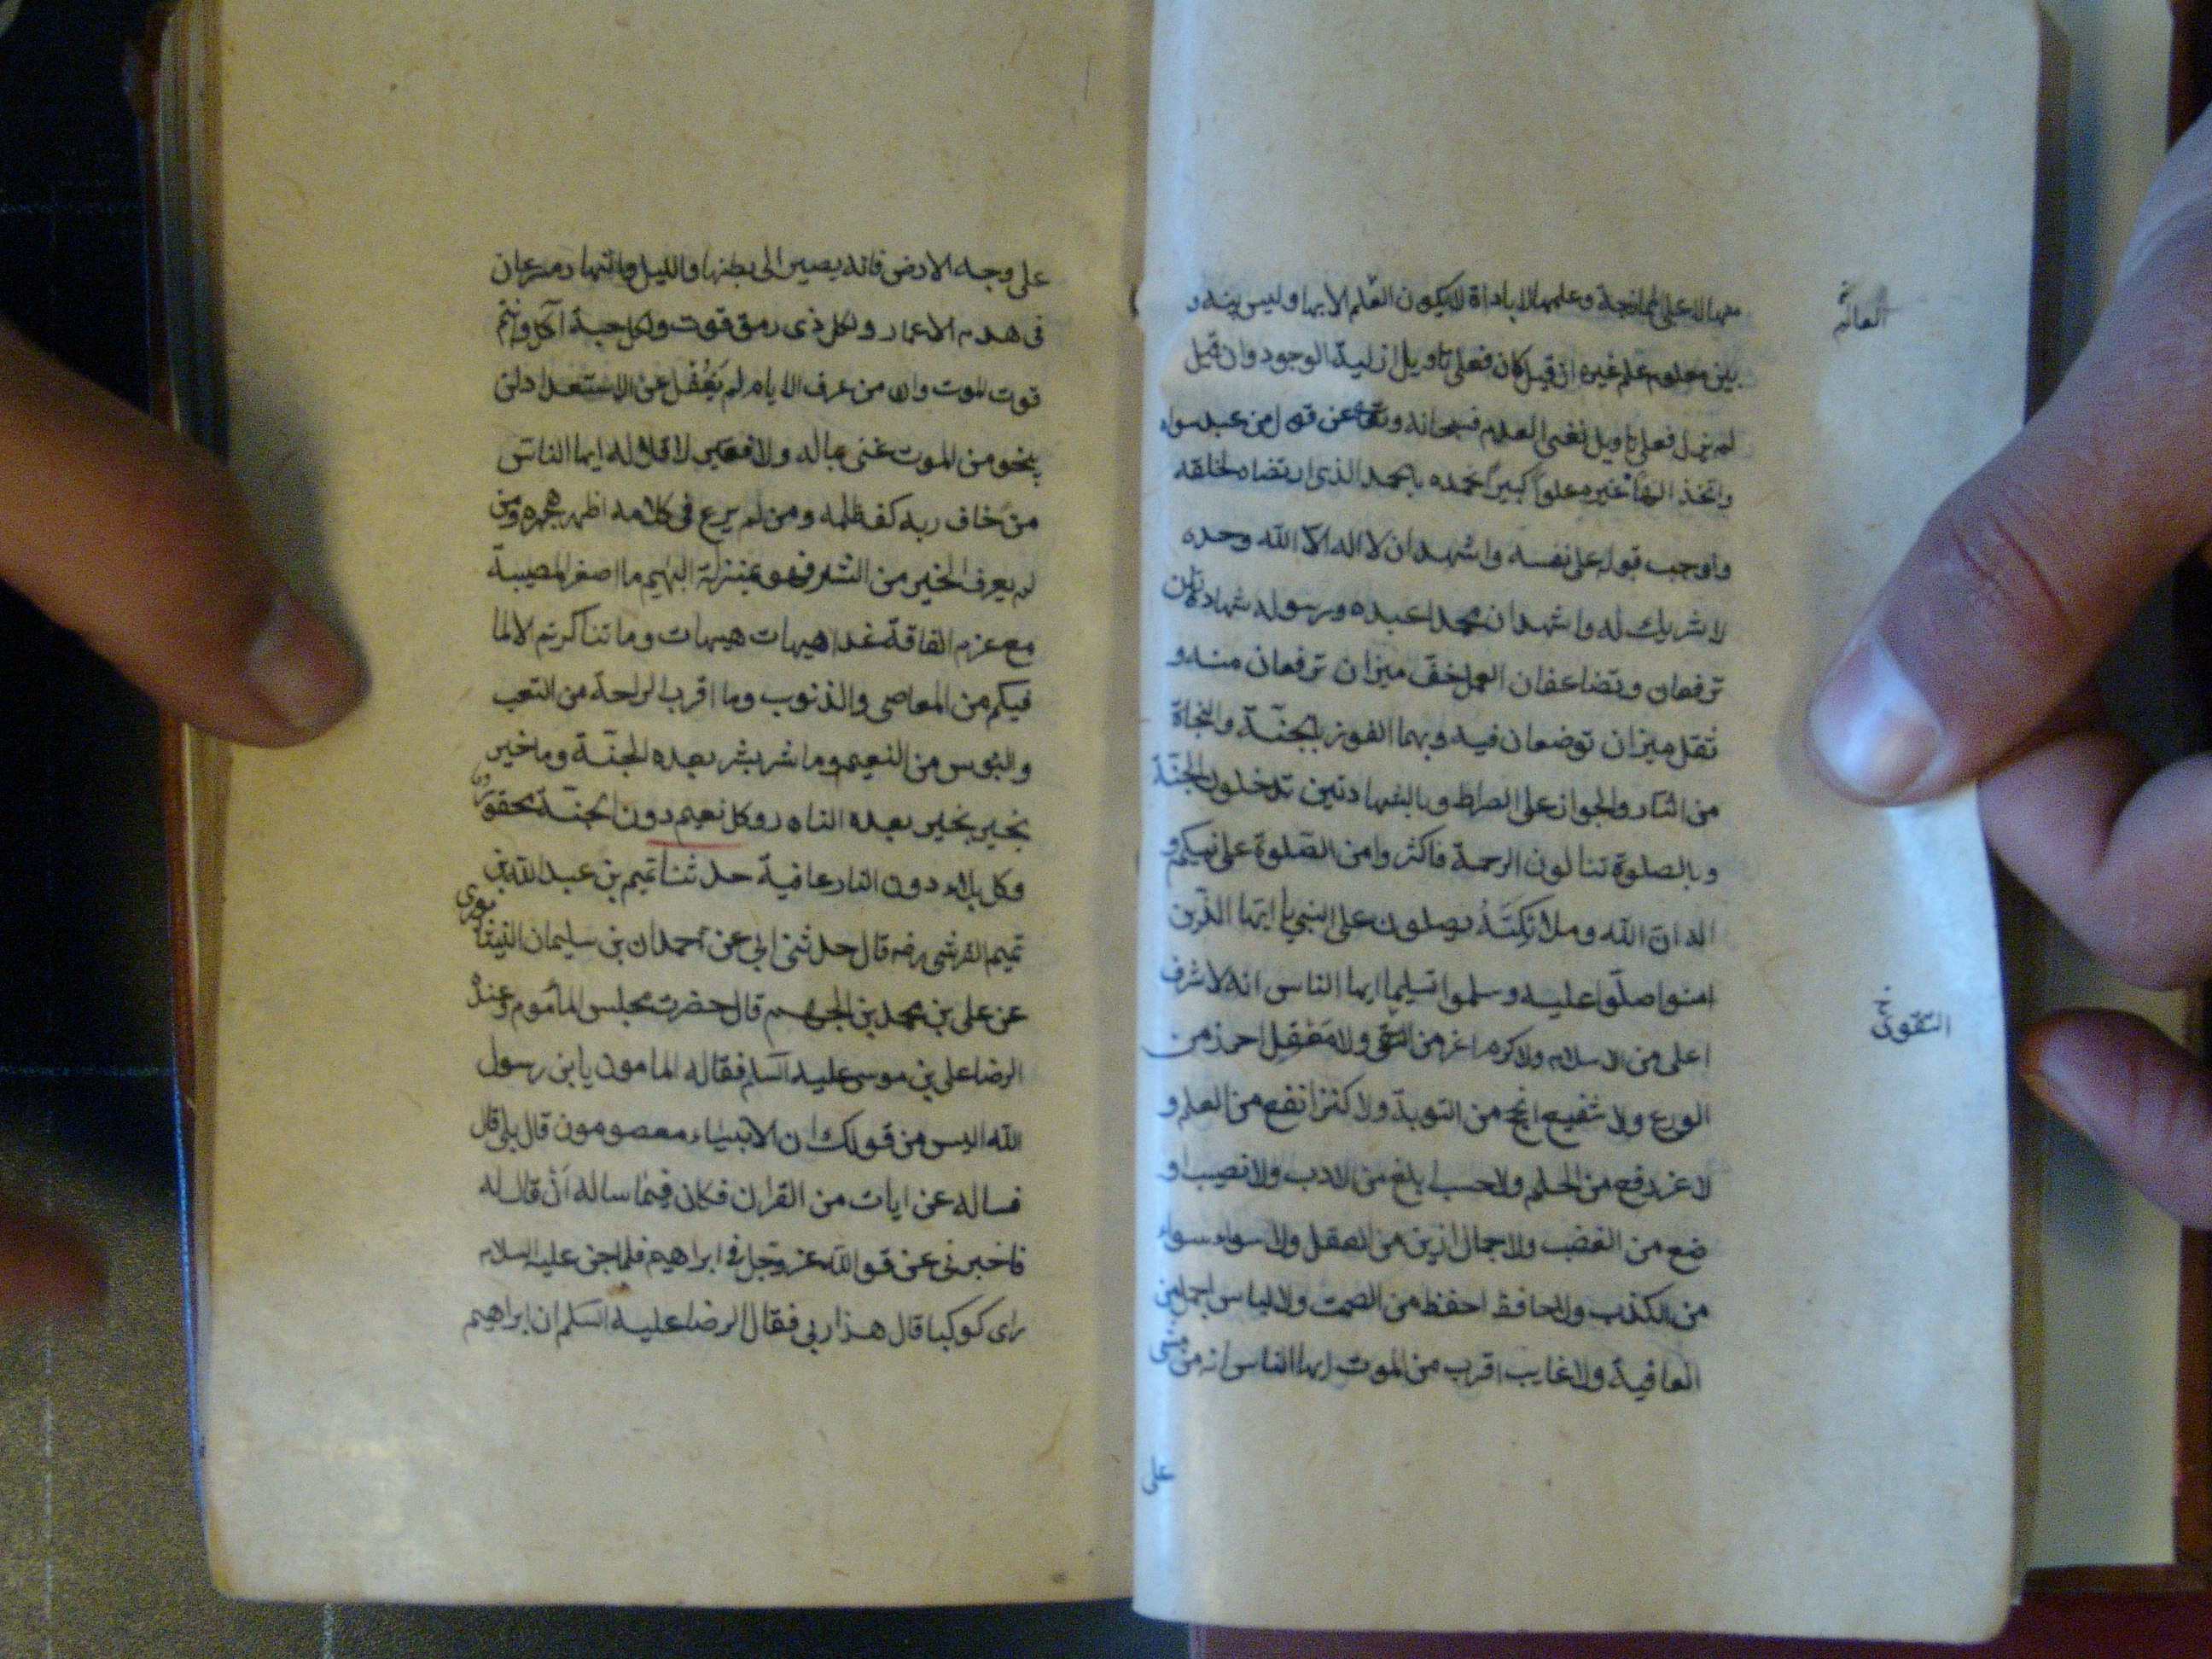 منها لا على الممازجة وعلمها لا باداة لا يكون العلم الا بها وليس بينه و
بين معلومه علم غيره ان قيل كان فعلى تاويل ازلية الوجود وان قيل
لم يزل فعلى تاويل نفى العدم فسبحانه وتعالى عن قول من عبد سواه
واتخذ الها غيره علوا كبيرا نحمده بالحمد الذى ارتضاه لخلقه
واوجب قبوله على نفسه واشهد ان لا اله الا الله وحده
لا شريك له واشهد ان محمدا عبده ورسوله شهادتان
ترفعان وتضاعفان العمل خف ميزان ترفعان منه و
ثقل ميزان توضعان فيه وبهما الفوز بالجنة والنجاة
من النار والجواز على الصراط وبالشهادتين تدخلون الجنة
وبالصلوة تنالون الرحمة فاكثروا من الصلوة على نبيكم و
اله ان الله وملائكته يصلون على النبي يا ايها الذين
امنوا صلوا عليه وسلموا تسليما ايها الناس انه لا شرف
اعلى من الاسلام ولا كرم اعز من التقى ولا معقل احرز من
الورع ولا شفيع انجح من التوبة ولا كنز انفع من العلم و
لا عز ارفع من الحلم ولا حسب ابلغ من الادب ولا نصيب او
ضع من الغضب ولا جمال ازين من العقل ولا سواه سواء
من الكذب ولا حافظ احفظ من الصمت ولا لباس اجمل من
العافية ولا غايب اقرب من الموت ايها الناس انه من مشى
على
العالم
خ
التقوى
على وجه الارض فانه يصير الى بطنها والليل والنهار مسرعان
فى هدم الاعمار ولكل ذى رمق قوت ولكل حبة اكل وانتم
قوت الموت وان من عرف الايام لم يغفل عن الاستعداد لن
ينجو من الموت غنى بماله ولا فقير لاقلاله ايها الناس
من خاف ربه كف ظلمه ومن لم يرع فى كلامه اظهر هجره ومن
لم يعرف الخير من الشر فهو بمنزلة البهيم ما اصغر المصيبة
مع عزم الفاقة غدا هيهات هيهات وما تناكرتم الا لما
فيكم من المعاصى والذنوب وما اقرب الراحة من التعب
والبؤس من النعيم وما شر بشر بعده الجنة وما خير
بخير بخير بعده النار وكل نعيم دون الجنة محقور
وكل بلاء دون النار عافية حدثنا تميم بن عبد الله بن
تميم القرشى رضه قال حدثنى ابي عن حمدان بن سليمان النيشابورى
عن على بن محمد بن الجهم قال حضرت مجلس المأمون وعنده
الرضا على بن موسى عليه السلم فقال له المامون يا بن رسول
الله اليس من قولك ان الانبياء معصومون قال بلى قال
فساله عن ايات من القران فكان فيما ساله ان قال له
فاخبرنى عن قول الله عز وجل فى ابراهيم فلما جن عليه السلام
راى كوكبا قال هذا ربى فقال الرضا عليه السلم ان ابراهيم